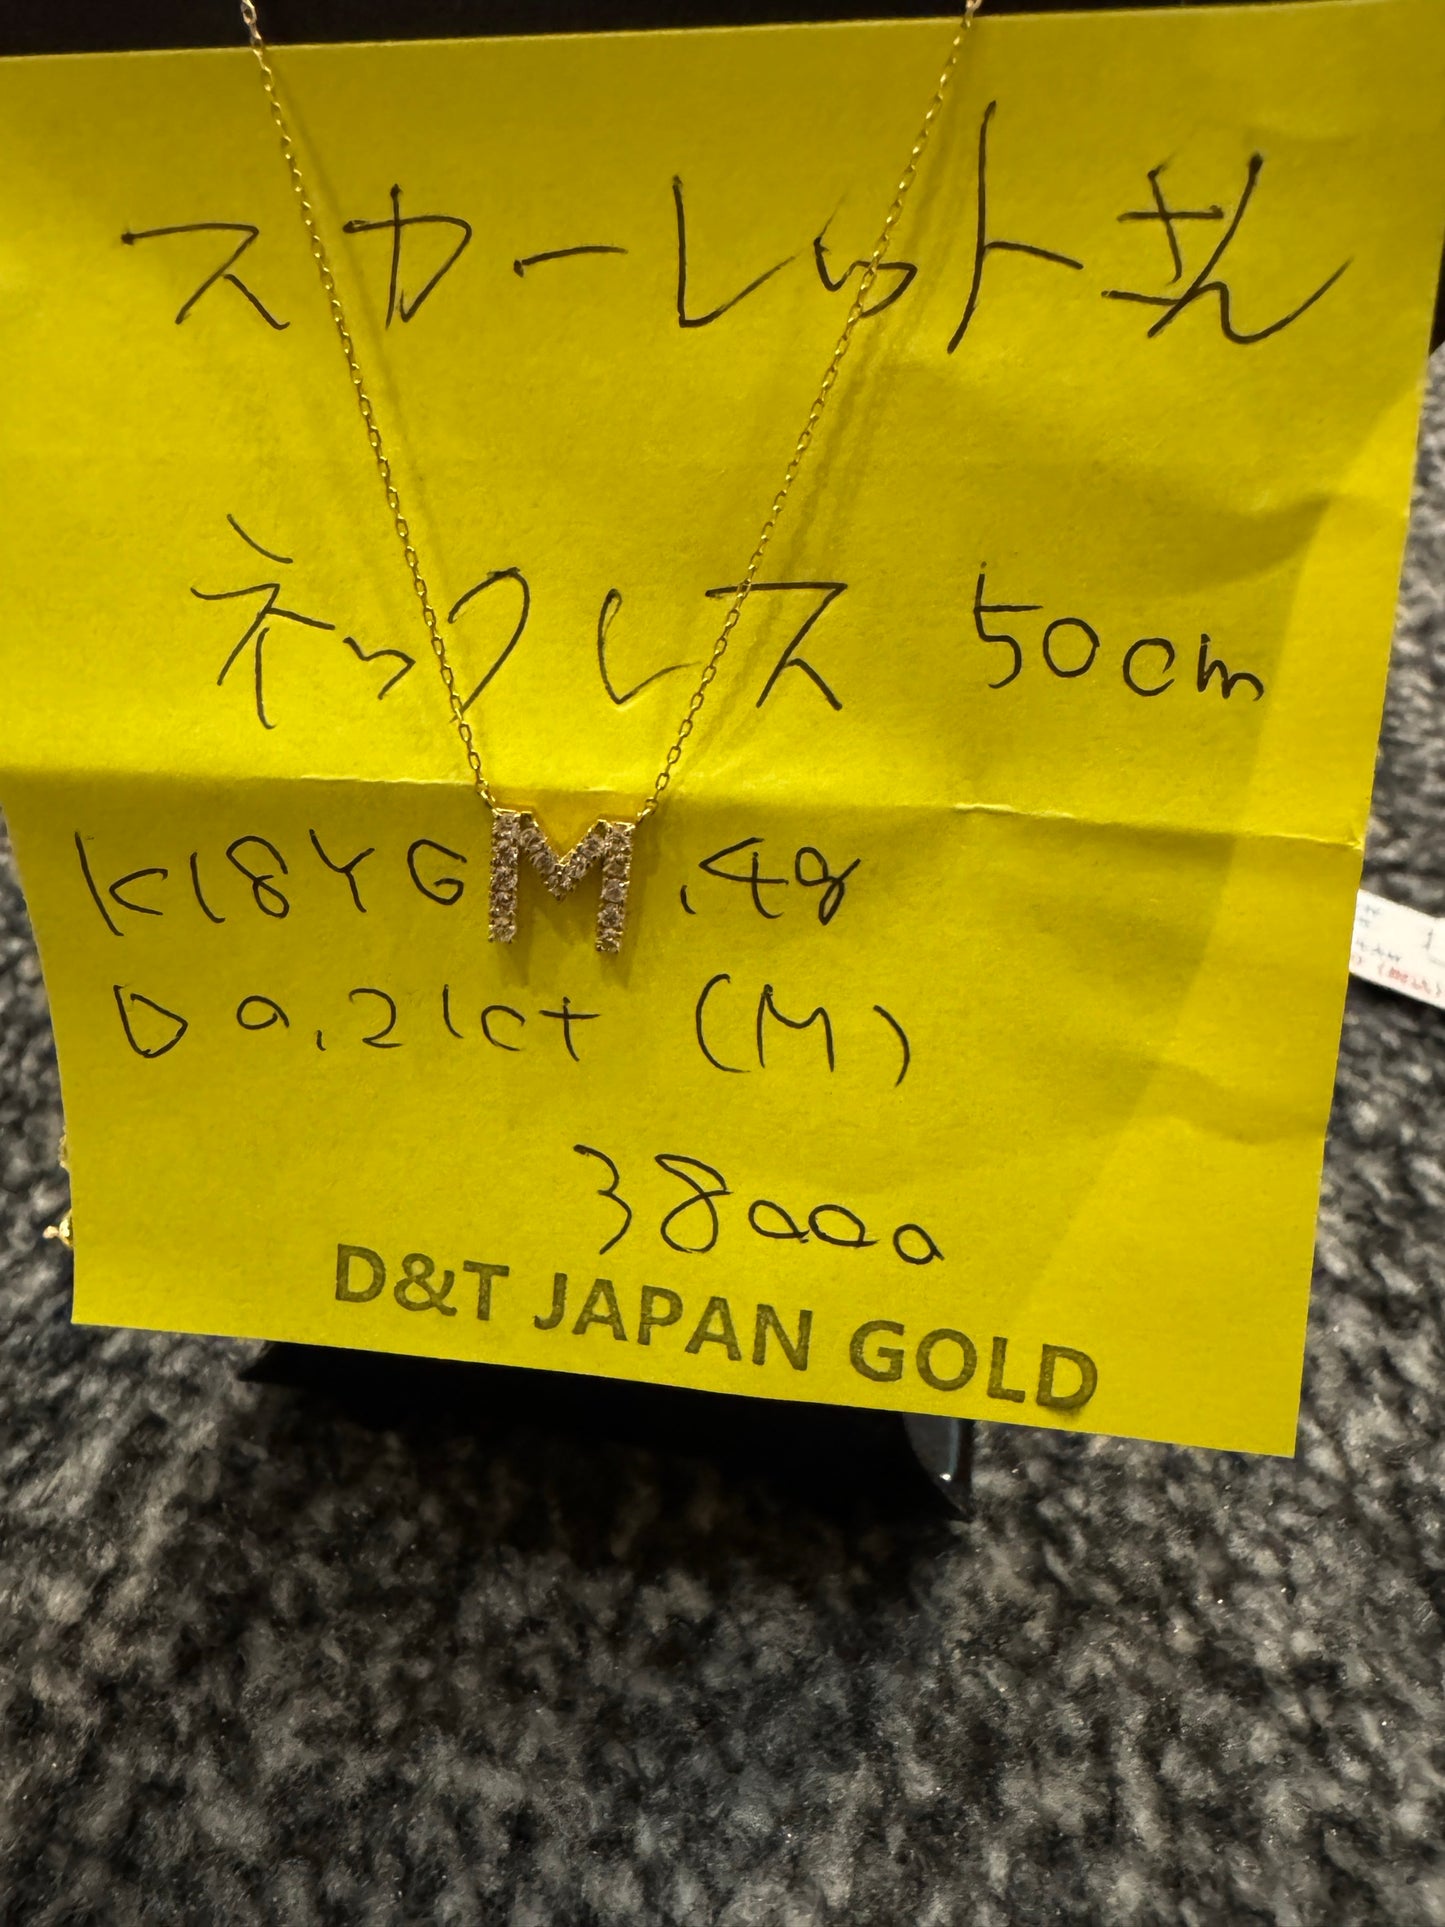 スカーレットさん
ネックレス 50cm
K18YG .4g
D 0.21ct (M)
38000
D&T JAPAN GOLD